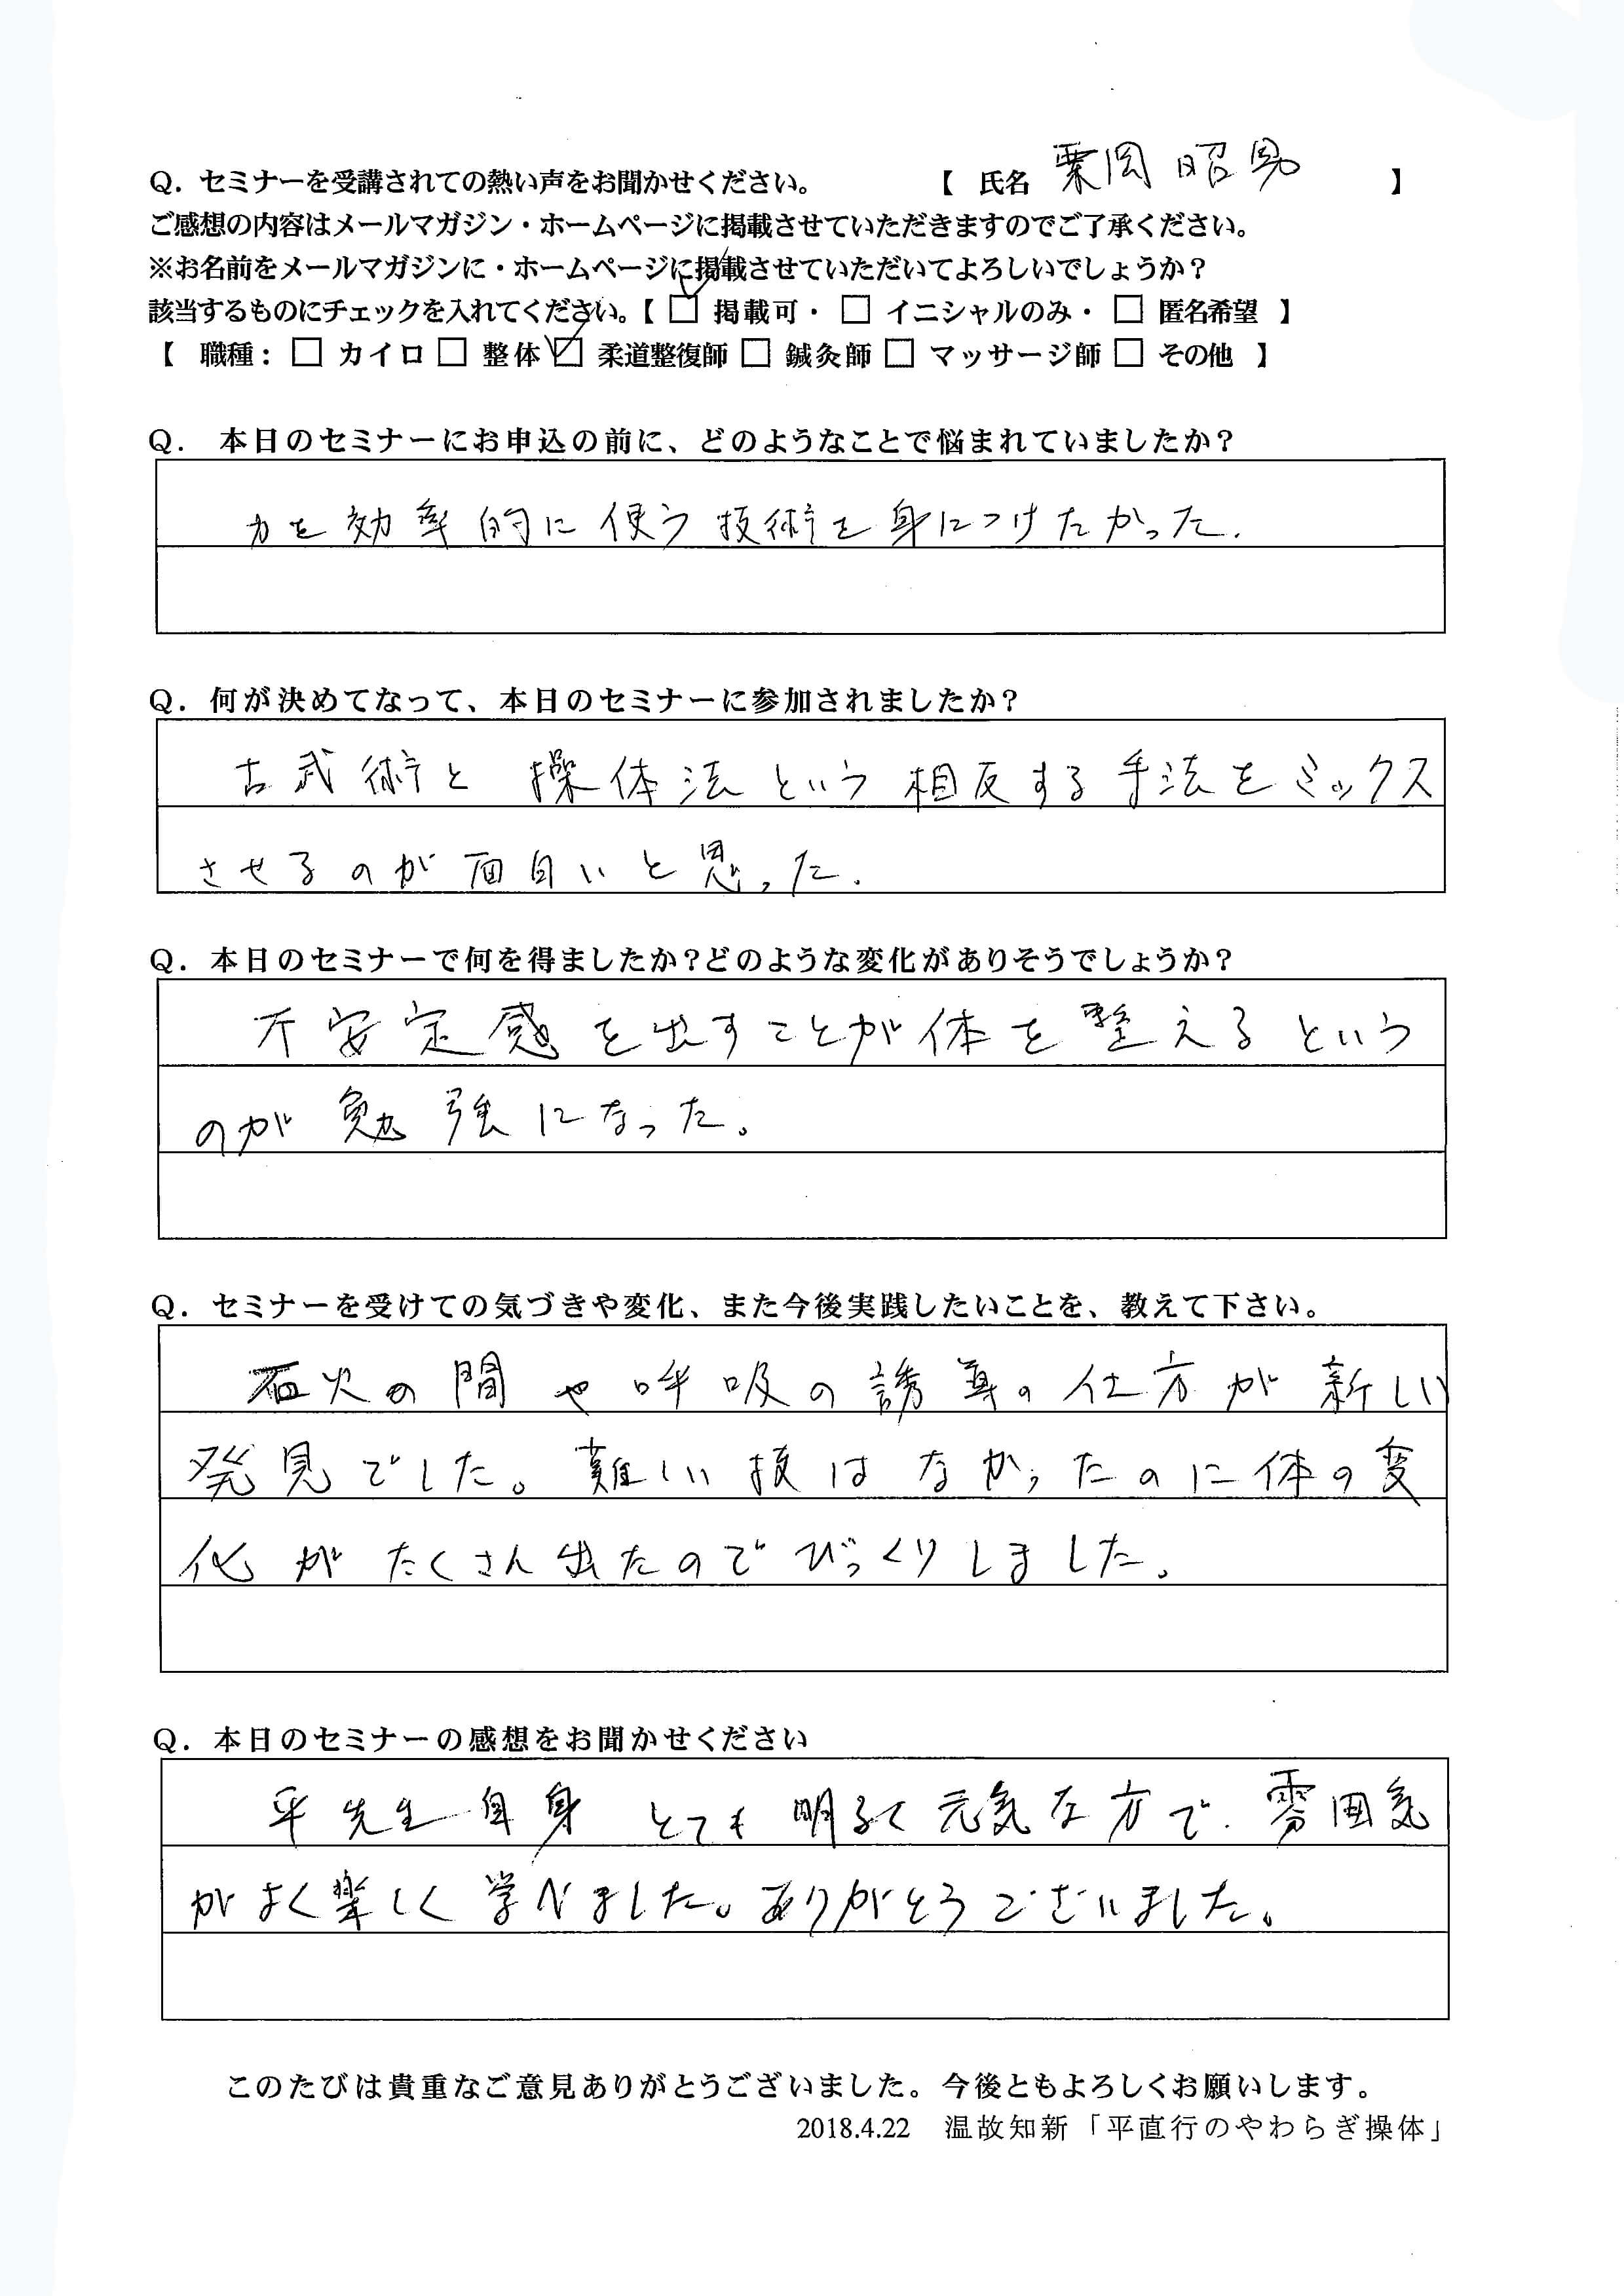 Q. セミナーを受講されての熱い声をお聞かせください。 【 氏名 栗岡 昭男 】
ご感想の内容はメールマガジン・ホームページに掲載させていただきますのでご了承ください。
※お名前をメールマガジンに・ホームページに掲載させていただいてよろしいでしょうか？
該当するものにチェックを入れてください。【 ☑ 掲載可・ □ イニシャルのみ・ □ 匿名希望 】
【 職種： □ カイロ □ 整体 ☑ 柔道整復師 □ 鍼灸師 □ マッサージ師 □ その他 】
Q. 本日のセミナーにお申込の前に、どのようなことで悩まれていましたか？
力を効率的に使う技術を身につけたかった.
Q. 何が決めてなって、本日のセミナーに参加されましたか？
古武術と 操体法という相反する手法をミックス
させるのが面白いと思った.
Q. 本日のセミナーで何を得ましたか？どのような変化がありそうでしょうか？
不安定感を出すことが体を整えるという
のが勉強になった。
Q. セミナーを受けての気づきや変化、また今後実践したいことを、教えて下さい。
石火の間や呼吸の誘導の仕方が新しい
発見でした。難しい技はなかったのに体の変
化がたくさん出たのでびっくりしました。
Q. 本日のセミナーの感想をお聞かせください
平先生自身 とても明るく元気な方で. 雰囲気
がよく楽しく学べました。ありがとうございました。
このたびは貴重なご意見ありがとうございました。今後ともよろしくお願いします。
2018.4.22 温故知新「平直行のやわらぎ操体」